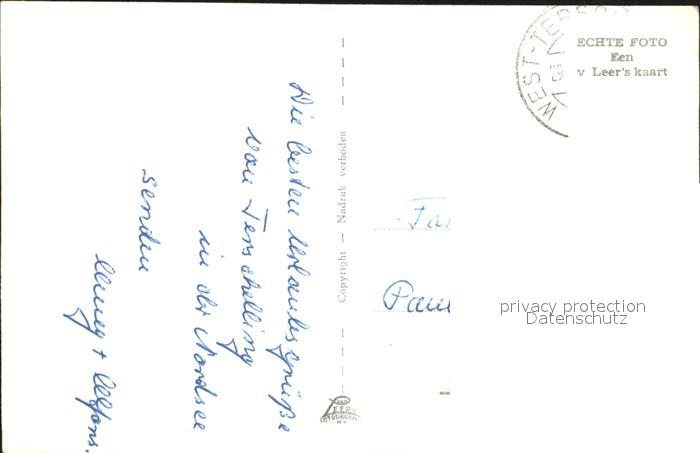 Die besten Urlaubsgrüße
von Terschelling
in der Nordsee
senden
+ Alfons.
Copyright — Nadruk verboden
VAN
LEER'S
FOTODRUKKERIJ
N.V.
WEST-TERSC
ECHTE FOTO
Een
v Leer's kaart
Fa
Paul
privacy protection
Datenschutz